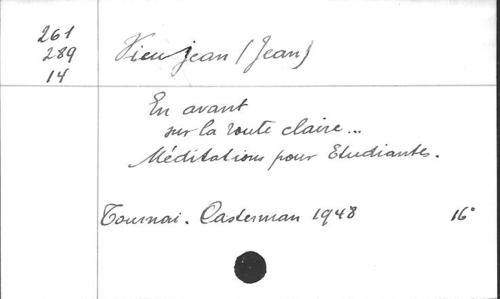 261
289
14
Vieujean (Jean)
En avant
sur la route claire...
Méditations pour Etudiantes.
Tournai. Casterman 1948 16°